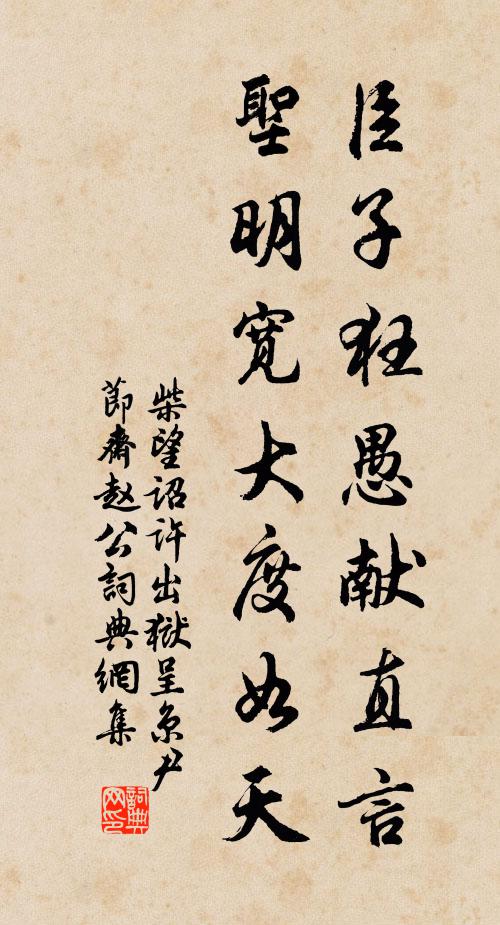 臣子狂愚献直言
聖明寛大度如天
柴望詔許出獄呈京尹
節齋赵公詞典網集
詞典
网印